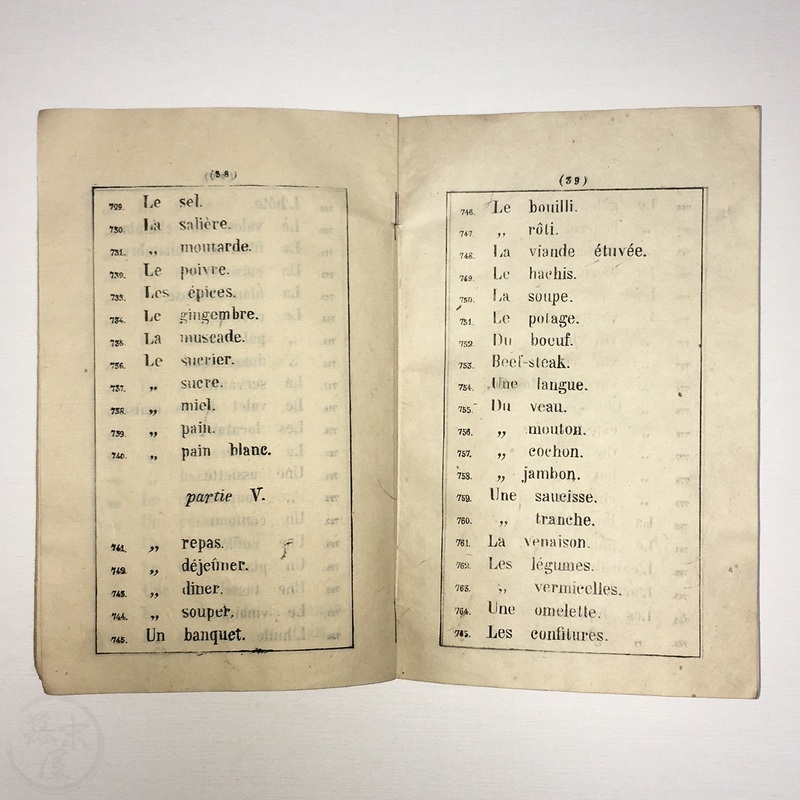 (38)
729. Le sel.
730. La salière.
731. „ moutarde.
732. Le poivre.
733. Les épices.
734. Le gingembre.
735. La muscade.
736. Le sucrier.
737. „ sucre.
738. „ miel.
739. „ pain.
740. „ pain blanc.
partie V.
741. „ repas.
742. „ déjeûner.
743. „ diner.
744. „ souper.
745. Un banquet.
(39)
746. Le bouilli.
747. „ rôti.
748. La viande étuvée.
749. Le hachis.
750. La soupe.
751. Le potage.
752. Du boeuf.
753. Beef-steak.
754. Une langue.
755. Du veau.
756. „ mouton.
757. „ cochon.
758. „ jambon.
759. Une saucisse.
760. „ tranche.
761. La venaison.
762. Les légumes.
763. „ vermicelles.
764. Une omelette.
765. Les confitures.